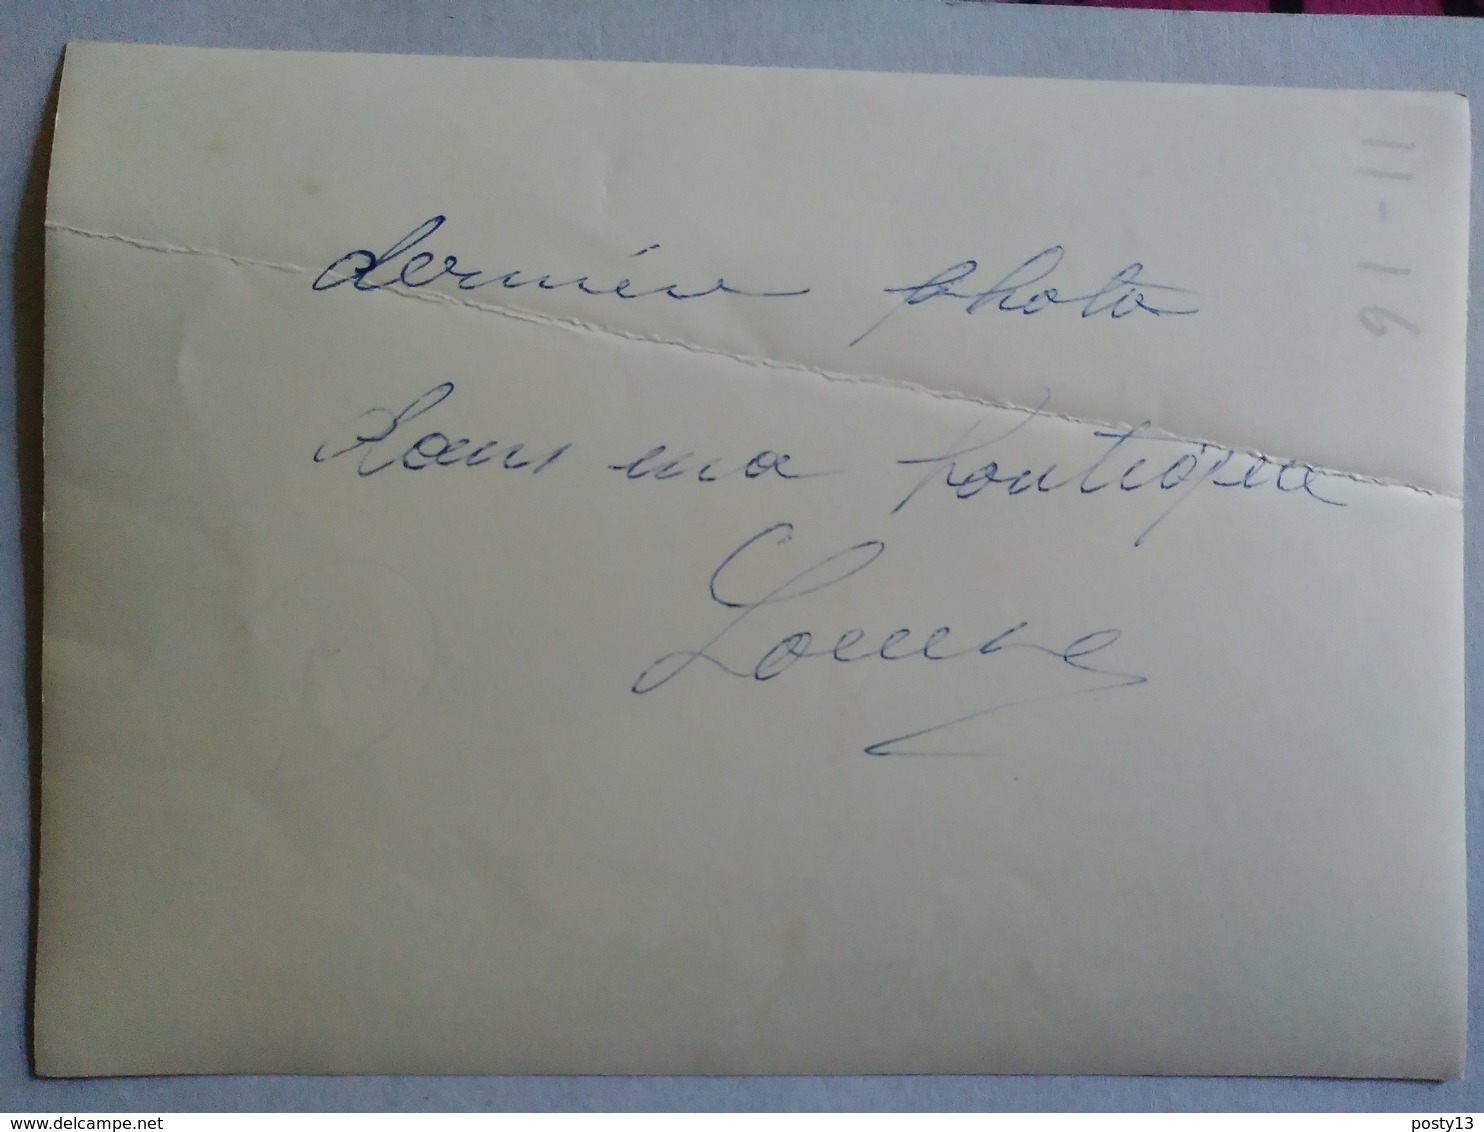 dernièr photo
dans ma boutique
Louise
11-16
delcampe.net
posty13